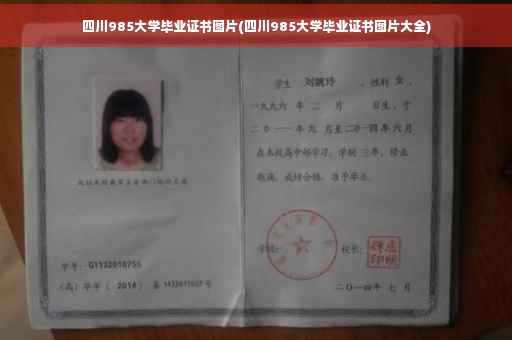 四川985大学毕业证书图片(四川985大学毕业证书图片大全)
学生 刘婉玲 ，性别 女 ，
一九九六 年 二 月 日生，于
二0一一年九 月至二0一四年六月
在本校高中部学习，学制 三年，修业
期满，成绩合格，准予毕业。
学校： 校长：
学号：G1132010755
（高）毕字（ 2014 ）第 1432011027 号
二〇一四年 七 月